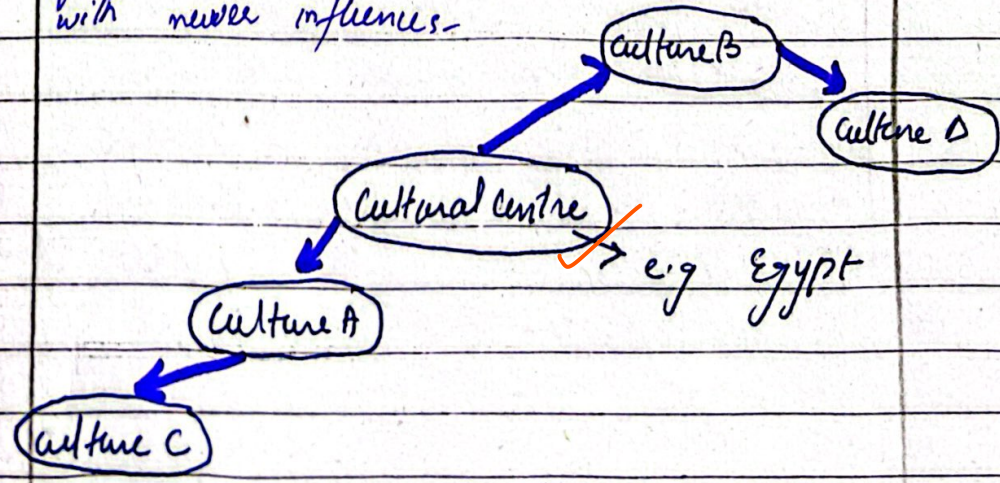 with newer influences.
Culture B
Culture D
Cultural Centre
e.g Egypt
Culture A
Culture C